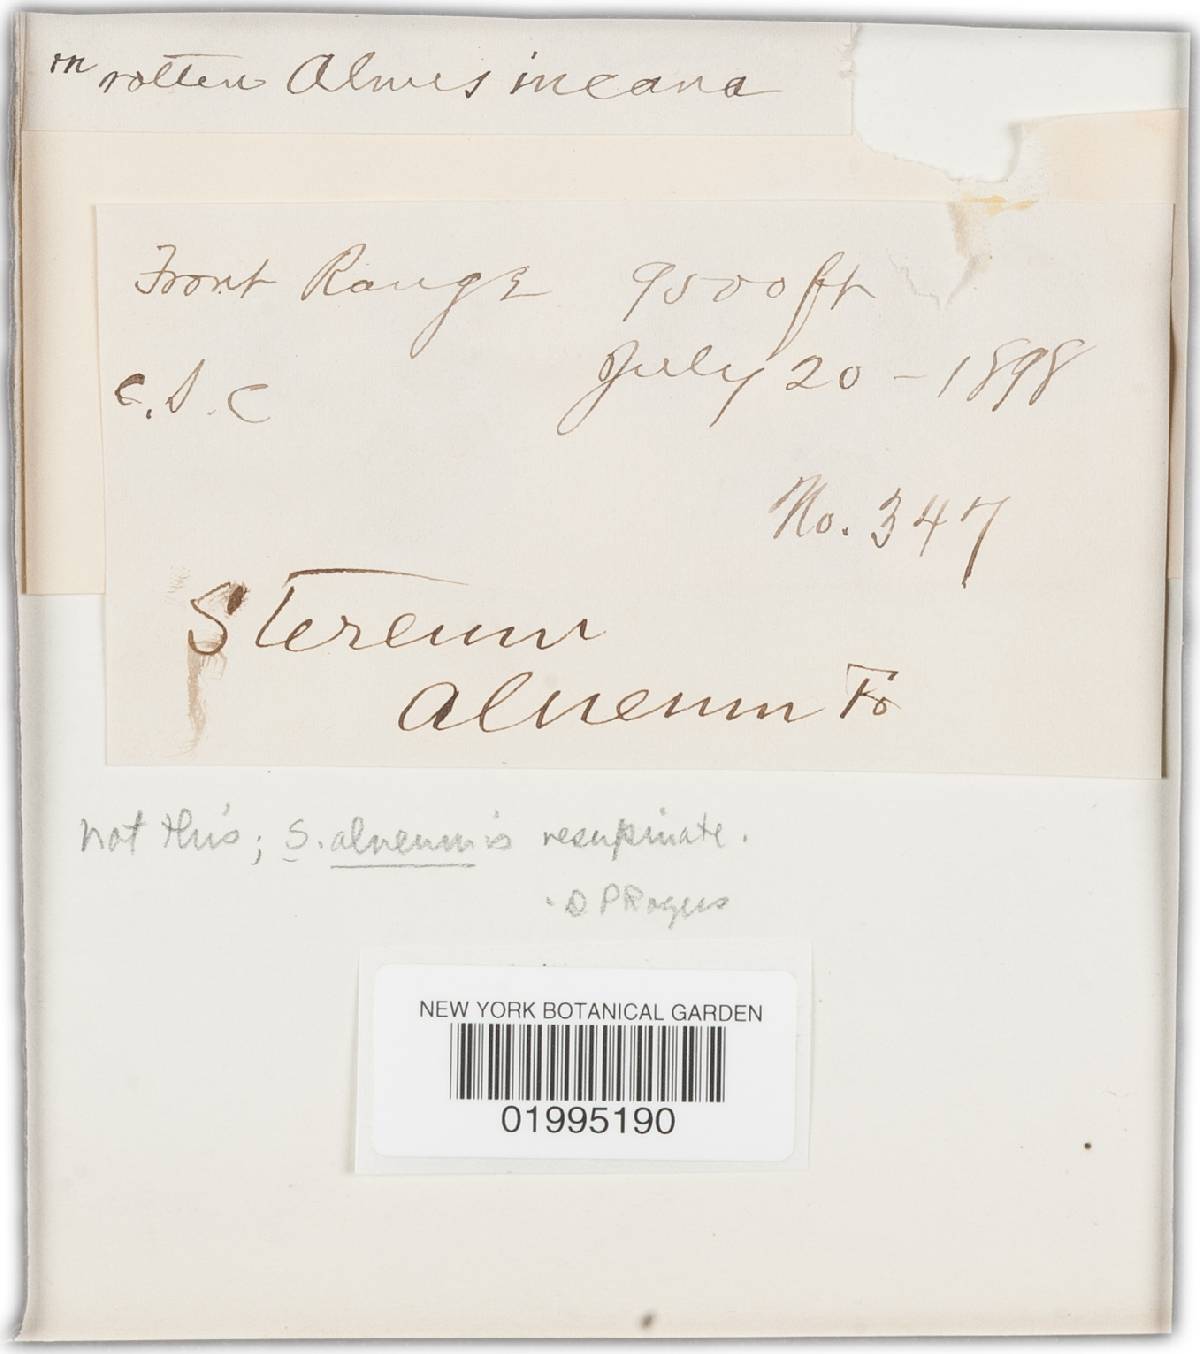 on rotten Alnus incana
Front Range 9500 ft
C.S.C July 20 - 1898
No. 347
Stereum
alneum Fr
not this; S. alneum is resupinate.
D P Rogers
NEW YORK BOTANICAL GARDEN
01995190